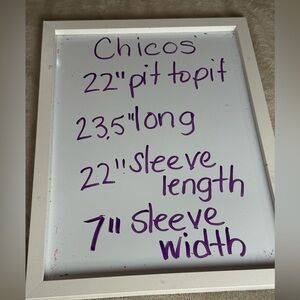 Chicos
22" pit to pit
23.5" long
22" sleeve
length
7" sleeve
width